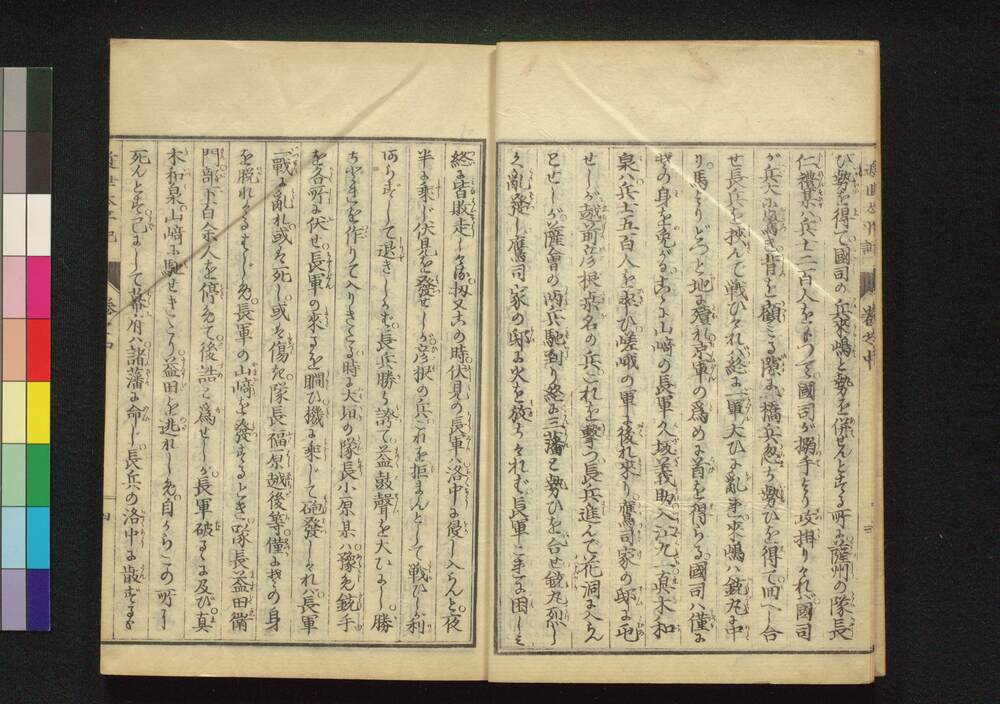 び勢を得て國司の兵來嶋と勢を併せんとする所に薩州の隊長
仁禮某八兵士二百人をもつて國司が搦手より攻掛りければ國司
が兵大に驚き背を顧みる隙に一橋兵忽ち勢ひを得て回へし合
せ長兵を挾んで戰ひければ終に一軍大ひに亂走來嶋ハ銃丸に中
り馬よりどつと地に殪れ京軍の爲めに首を得らる國司ハ僅に
其の身を免がるこゝに山﨑の長軍久坂義助入江九一真木和
泉八兵士五百人を率ひ嵯峨の軍に後れ來り鷹司家の邸に屯
せしが越前彦根桑名の兵これを擊つ長兵進んで花洞に入らん
とせしが薩會の兩兵馳到り終に三藩と勢ひを合せ銃丸烈し
く亂發し鷹司家の邸に火を放ちければ長軍こゝに困しミ
終に皆敗走しける扨又この時伏見の長軍ハ洛中に侵し入らんと夜
半に乘じ伏見を發せしが彦根の兵これを拒まんとして戰ひしハ利
あらずして退きしかば長兵勝に誇て益鼓聲を大ひにし勝
ちどきを作りて入りきたる時に大垣の隊長小原某ハ豫め銃手
を各所に伏せ長軍の來るを瞷ひ機に乘じて砲發しければ長軍
一戰に亂れ或ハ死し或ハ傷き隊長福原越後等僅に其の身
を脱れかるはじめ長軍の山﨑を發するとき隊長益田衛
門部下百余人を停めて後詰と爲せしが長軍破るゝに及び真
木和泉山﨑に馳せきたり益田を逃れしめ自からこの所に
死んとす已にして幕府ハ諸藩に命じ長兵の洛中に散ずるを